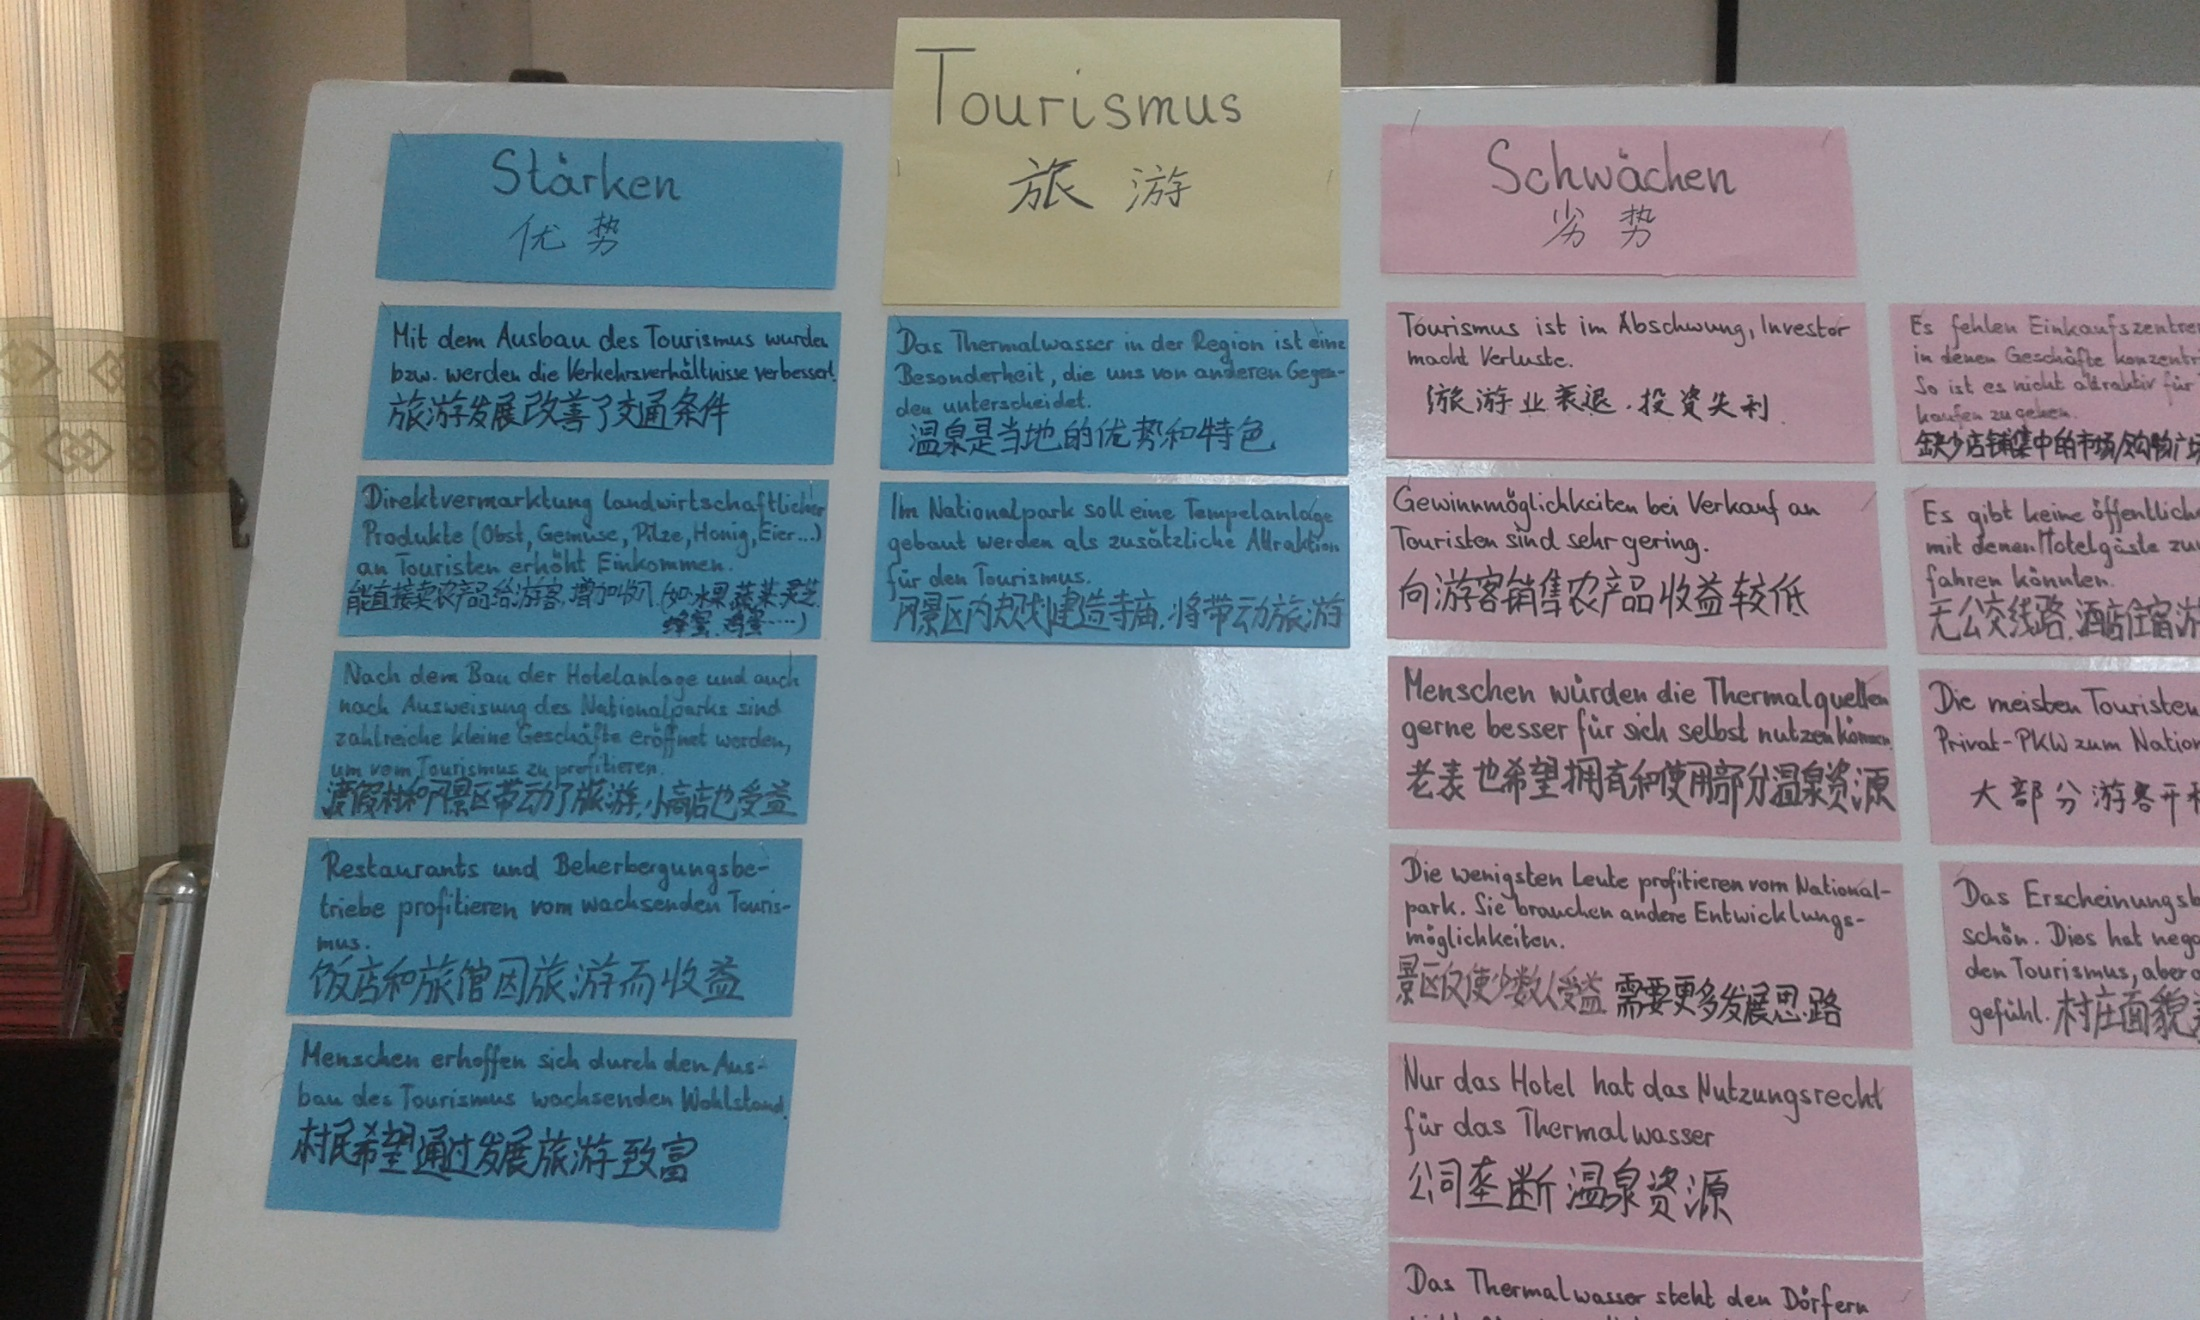 Tourismus
旅游
Stärken
优势
Mit dem Ausbau des Tourismus wurden
bzw. werden die Verkehrsverhältnisse verbessert.
旅游发展改善了交通条件
Direktvermarktung landwirtschaftlicher
Produkte (Obst, Gemüse, Pilze, Honig, Eier...)
an Touristen erhöht Einkommen.
能直接卖农产品给游客,增加收入(如:水果,蔬菜,灵芝,
蜂蜜,鸡蛋……)
Nach dem Bau der Hotelanlage und auch
nach Ausweisung des Nationalparks sind
zahlreiche kleine Geschäfte eröffnet worden,
um vom Tourismus zu profitieren.
度假村和风景区带动了旅游,小商店也受益
Restaurants und Beherbergungsbe-
triebe profitieren vom wachsenden Touris-
mus.
饭店和旅馆因旅游而收益
Menschen erhoffen sich durch den Aus-
bau des Tourismus wachsenden Wohlstand.
村民希望通过发展旅游致富
Das Thermalwasser in der Region ist eine
Besonderheit, die uns von anderen Gegen-
den unterscheidet.
温泉是当地的优势和特色
Im Nationalpark soll eine Tempelanlage
gebaut werden als zusätzliche Attraktion
für den Tourismus.
风景区内规划建造寺庙,将带动旅游
Schwächen
劣势
Tourismus ist im Abschwung, Investor
macht Verluste.
旅游业衰退,投资失利
Gewinnmöglichkeiten bei Verkauf an
Touristen sind sehr gering.
向游客销售农产品收益较低
Menschen würden die Thermalquellen
gerne besser für sich selbst nutzen können.
老表也希望拥有和使用部分温泉资源
Die wenigsten Leute profitieren vom National-
park. Sie brauchen andere Entwicklungs-
möglichkeiten.
景区仅使少数人受益 需要更多发展思路
Nur das Hotel hat das Nutzungsrecht
für das Thermalwasser
公司垄断温泉资源
Das Thermalwasser steht den Dörfern
Es fehlen Einkaufszentren
in denen Geschäfte
So ist es nicht attraktiv für
kaufen zu gehen.
缺少店铺集中的市场/购物广场
Es gibt keine öffentliche
mit denen Hotelgäste
fahren könnten.
无公交线路,酒店住宿游
Die meisten Touristen
Privat-PKW zum
大部分游客开
Das
schön. Dies hat
den Tourismus, aber
gefühl. 村庄面貌